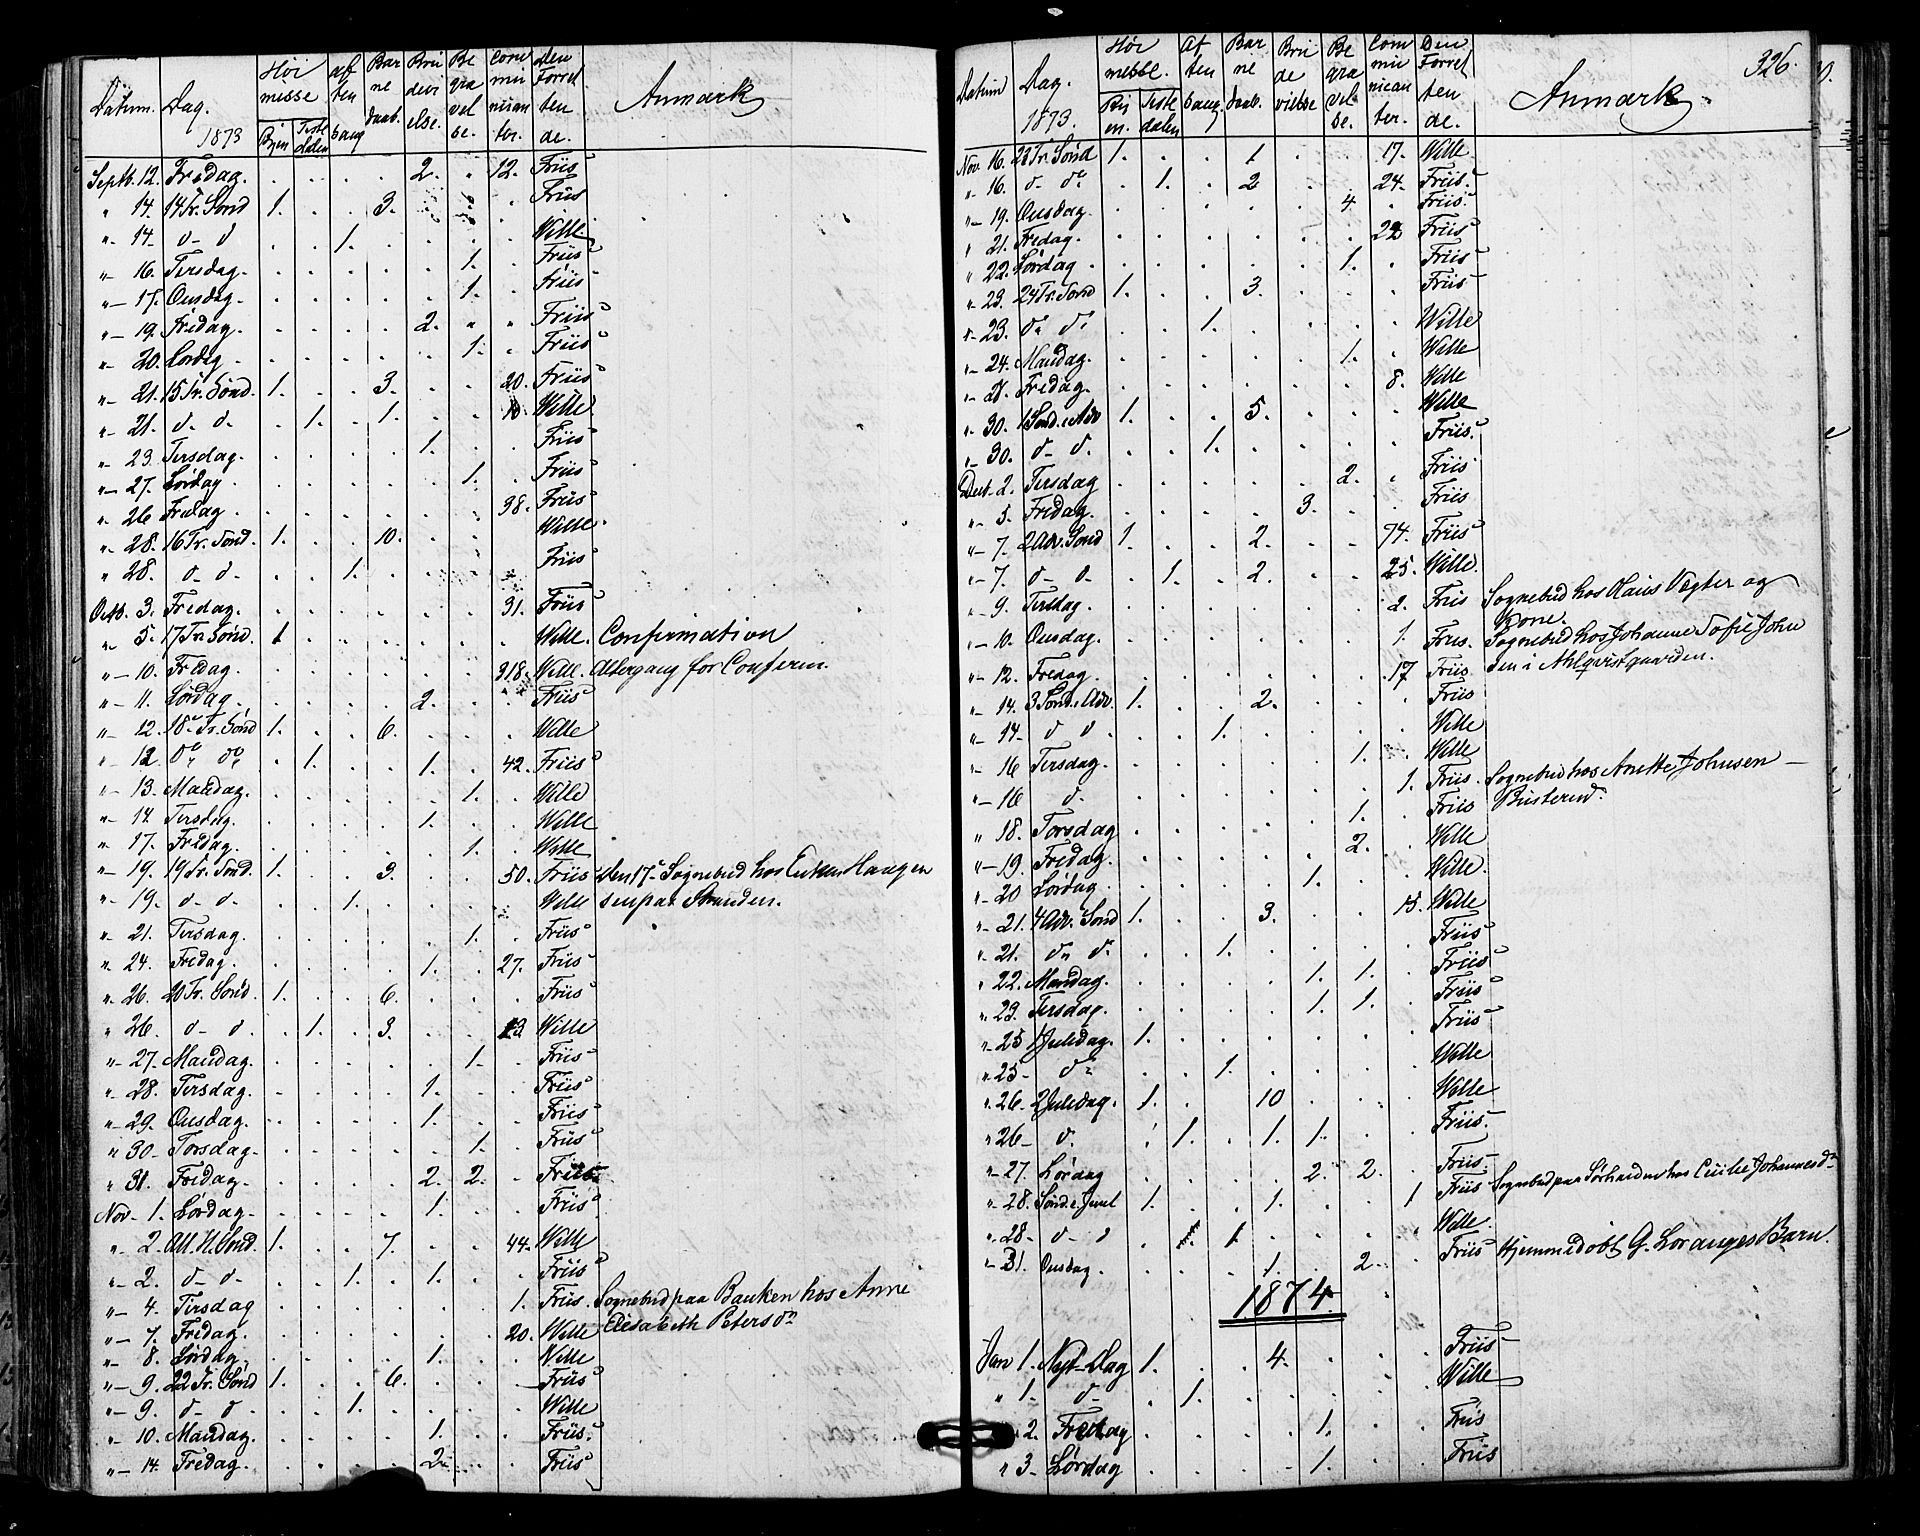 Datum. Dag. 1873 Høimesse Byen Tistedalen aftensang Barnedaab. Brudevielse. Begravelse. Communicanter. Den Forrettende. Anmærk
Septb. 12. Fredag. . . . . 2. . 12. Friis
" 14. 14 Tr. Sønd 1. . . 3. . . . Friis
" 14. d- d . . 1. . . . . Wille
" 16. Tirsdag. . . . . . 1. . Friis
" 17. Onsdag. . . . . . 1. . Friis
" 19. Fredag. . . . . 2. " " Friis
" 20. Lørdag . . . . . 1. . Friis
" 21. 15 Tr. Sønd. 1. . . 3. . . 20. Friis
" 21. d. d. . 1. . 1. . . Wille
" 23. Tirsdag. . . . . 1. . . Friis
" 27. Lørdag . . . . . 1. . Friis
" 26 Fredag . . . . . . 38. Friis
" 28. 16 Tr. Sønd. 1. . . 10. . . . Wille.
" 28. d- d- . . 1. . . . . Friis
Octb. 3. Fredag. . . . . . . 31. Friis
" 5. 17 Tr. Sønd. 1 . . . . . . Wille. Confirmation
" 10. Fredag. . . . . . . 318. Wille. Altergang for Conferm.
" 11. Lørdag . . . . 2. . . Friis
" 12. 18. Tr. Sønd 1. . . 6. . . . Wille
" 12. do do . 1. . . 1. . 42. Friis
" 13. Mandag. . . . . . 1. . Wille
" 14. Tirsdag. . . . . 1. . . Wille
" 17. Fredag. . . . . . 1. . Wille
" 19. 19 Tr. Sønd. 1. . . 3. . . 50. Friis den 17- Sognebud hos Haagen
" 19. d- d- . . 1. . . . . Wille sen paa Stranden.
" 21. Tirsdag. . . . . . 1. . Friis
" 24. Fredag. . . . . 1. . 27. Friis
" 26. 20 Tr. Sønd. 1. . . 6. . . . Friis
" 26. d- d. . 1. . 3. . . 13 Wille
" 27. Mandag. . . . . . 1. . Friis
" 28. Tirsdag. . . . . 1. . . Friis
" 29. Onsdag. . . . . 1. . . Friis
" 30. Torsdag. . . . . . 1. . Friis
" 31. Fredag. . . . . 2. 2. . Friis
Nov. 1. Lørdag. . . . . 1. . . Friis
" 2. All. H. Sønd. 1. . . 7. . . 44. Wille
" 2. d- d- . . 1. . 1. . . Friis
" 4. Tirsdag . . . . . . 1. Friis. Sognebud paa Banken hos Anne
" 7. Fredag. . . . . . . 20. Wille Elisabeth Petersdn
" 8. Lørdag . . . . 1. . . Wille
" 9. 22 Tr. Sønd 1. . . 6. . . . Friis
" 9. d- d- . . 1. . . . . Wille
" 10. Mandag. . . . . 1. . . Friis.
" 14. Fredag. . . . . 2. . . Friis
326.
Datum Dag. 1873. Høimesse. Byen. Tistedalen Aftensang. Barnedaab. Brudevielse Begravelse. Communicanter. Den Forrettende. Anmærk.
Nov. 16. 23 Tr. Sønd 1. . . 1. . . 17. Wille
" 16. d- do . 1. . 2. . . 24. Friis.
" 19. Onsdag. . . . . . 4 . Friis.
" 21. Fredag. . . . . . . Friis
" 22. Lørdag . . . . . 1. . Friis
" 23. 24 Tr. Sønd 1. . . 3. . . . Friis
" 23. do do . . 1. . . . . Wille
" 24. Mandag. . . . . . 1. . Wille
" Fredag. . . . . . . 8. Wille
" 30. 1 Sønd. i Adv 1. . . 5. . . . Wille
" 30. d- d. . . 1. . . . . Friis.
Decb. 2. Tirsdag . . . . . 2. . Friis
" 5. Fredag. . . . . 3. . . Friis
" 7. 2 Adv. Sønd 1. . . 2. . . 74. Friis
" 7. d- d- . 1. . 2. . . 25. Wille.
" 9. Tirsdag. . . . . . . 2. Friis Sognebud hos Hans Vegter og
Kone.
" 10. Onsdag. . . . . . . 1. Friis. Sognebud hos Johanne Sofie John
" 12. Fredag. . . . . . . 17 Friis sen i Ahlqvistgaarden.
" 14. 3 Sønd. i Adv. 1. . . 2. . . . Friis
" 14- d d. . . 1. . . . . Wille
" 16 Tirsdag. . . . . . 1. . Wille
" 16 d. . . . . . . 1. Friis. Sognebud hos Anette Johnsen –
" 18. Torsdag . . . . . 1. . Friis Busterud.
" 19. Fredag. . . . . . 2. . Wille
" 20 Lørdag. . . . . 1. . . Wille.
" 21. 4 Adv. Sønd 1. . . 3. . . 15. Wille
" 21. d. d. . . 1. . . . . Friis
" 22. Mandag. . . . . 1. 1. . Friis
" 23. Tirsdag. . . . . 1. 1. . Friis
" 25 1 Juledag. 1. . . . . . . Friis
" 25- do . . 1. . . . . Wille
" 26. 2 Juledag. 1. . . 10 . . . Wille
" 26- d. . 1. . 1. 1. . . Friis.
" 27. Lørdag . . . . 2. 2. . Friis.
" 28. Sønd. e. Juul 1. . . 1. . . 1 Friis Sognebud paa Sørhalden hos Cecilie Johannesdn
" 28- d- d . . 1. 1. . . . Wille.
" 31. Onsdag. . . . 1. . 2. . Friis Hjemmedøbt G. Loranges Barn.
1874.
Jan 1. Nyt-Dag 1. . . 4. . . . Friis
" 1. d- . 1. . . . . . Wille
" 2. Fredag . . . . 1. . . Friis
" 3- Lørdag . . . . 1. . . Friis